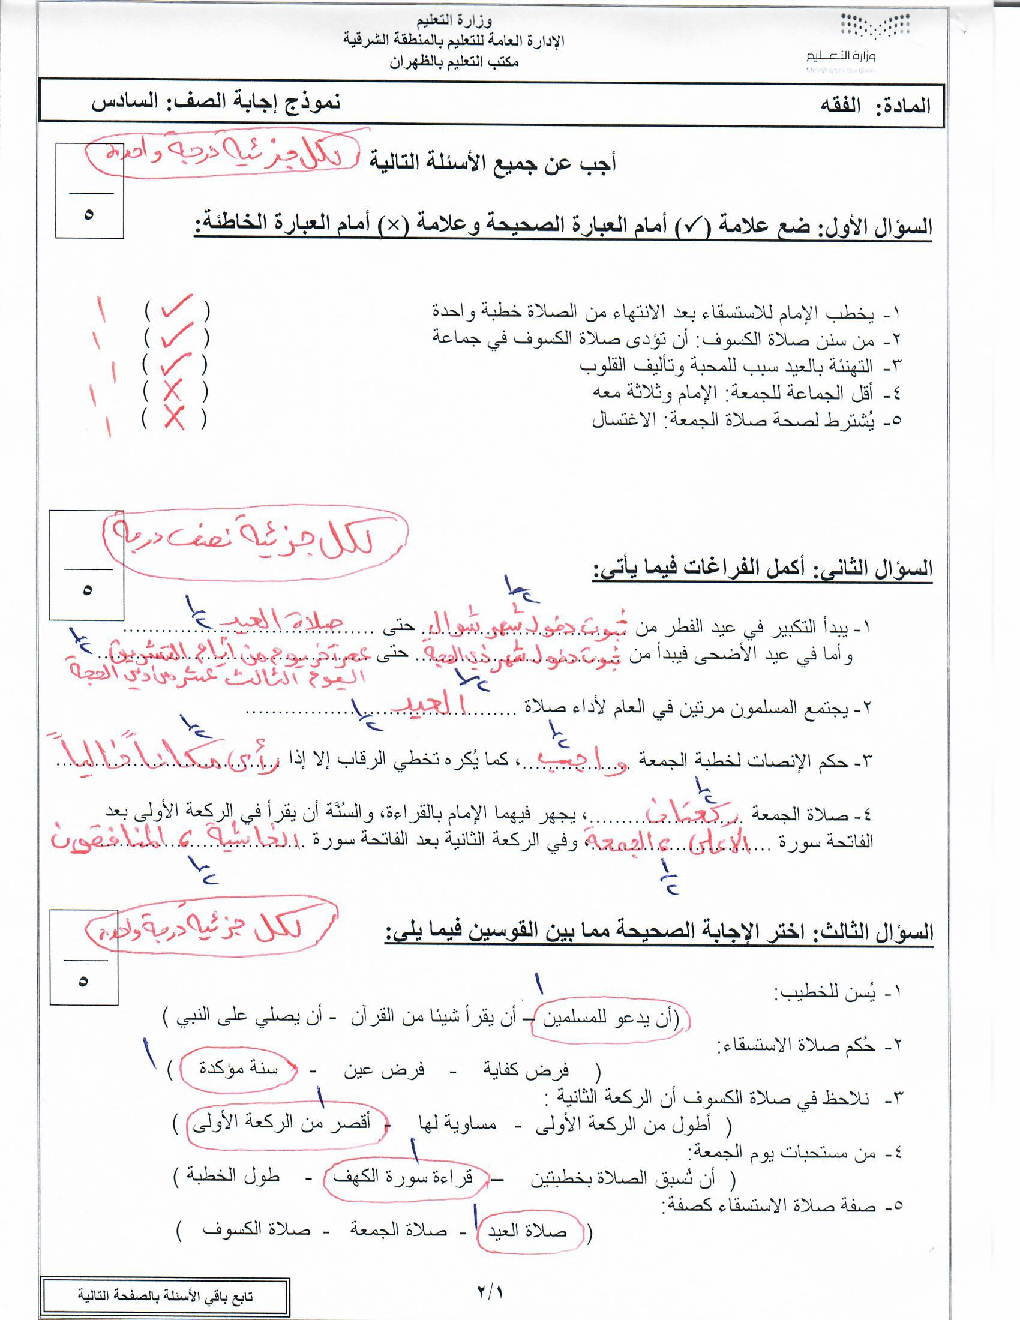 وزارة التعليم
الإدارة العامة للتعليم بالمنطقة الشرقية
مكتب التعليم بالظهران
وزارة التعليم
المادة: الفقه
نموذج إجابة الصف: السادس
أجب عن جميع الأسئلة التالية
لكل جزئية درجة واحدة
٥
السؤال الأول: ضع علامة (✓) أمام العبارة الصحيحة وعلامة (×) أمام العبارة الخاطئة:
١- يخطب الإمام للاستسقاء بعد الانتهاء من الصلاة خطبة واحدة ( ✓ ) ١
٢- من سنن صلاة الكسوف: أن تؤدى صلاة الكسوف في جماعة ( ✓ ) ١
٣- التهنئة بالعيد سبب للمحبة وتأليف القلوب ( ✓ ) ١
٤- أقل الجماعة للجمعة: الإمام وثلاثة معه ( × ) ١
٥- يُشترط لصحة صلاة الجمعة: الاغتسال ( × ) ١
لكل جزئية نصف درجة
٥
السؤال الثاني: أكمل الفراغات فيما يأتي:
١- يبدأ التكبير في عيد الفطر من ثبوت دخول شهر شوال حتى صلاة العيد
وأما في عيد الأضحى فيبدأ من ثبوت دخول شهر ذي الحجة حتى عصر آخر يوم من أيام التشريق
اليوم الثالث عشر من ذي الحجة
٢- يجتمع المسلمون مرتين في العام لأداء صلاة العيد
٣- حكم الإنصات لخطبة الجمعة واجب، كما يُكره تخطي الرقاب إلا إذا رأى مكاناً خالياً
٤- صلاة الجمعة ركعتان، يجهر فيهما الإمام بالقراءة، والسُنَّة أن يقرأ في الركعة الأولى بعد
الفاتحة سورة الأعلى و الجمعة، وفي الركعة الثانية بعد الفاتحة سورة الغاشية و المنافقون
لكل جزئية درجة واحدة
٥
السؤال الثالث: اختر الإجابة الصحيحة مما بين القوسين فيما يلي:
١- يُسن للخطيب: ١
(أن يدعو للمسلمين - أن يقرأ شيئا من القرآن - أن يصلي على النبي )
٢- حُكم صلاة الاستسقاء: ١
( فرض كفاية - فرض عين - سنة مؤكدة )
٣- نلاحظ في صلاة الكسوف أن الركعة الثانية : ١
( أطول من الركعة الأولى - مساوية لها - أقصر من الركعة الأولى )
٤- من مستحبات يوم الجمعة: ١
( أن تُسبق الصلاة بخطبتين - قراءة سورة الكهف - طول الخطبة )
٥- صفة صلاة الاستسقاء كصفة: ١
( صلاة العيد - صلاة الجمعة - صلاة الكسوف )
٢/١
تابع باقي الأسئلة بالصفحة التالية